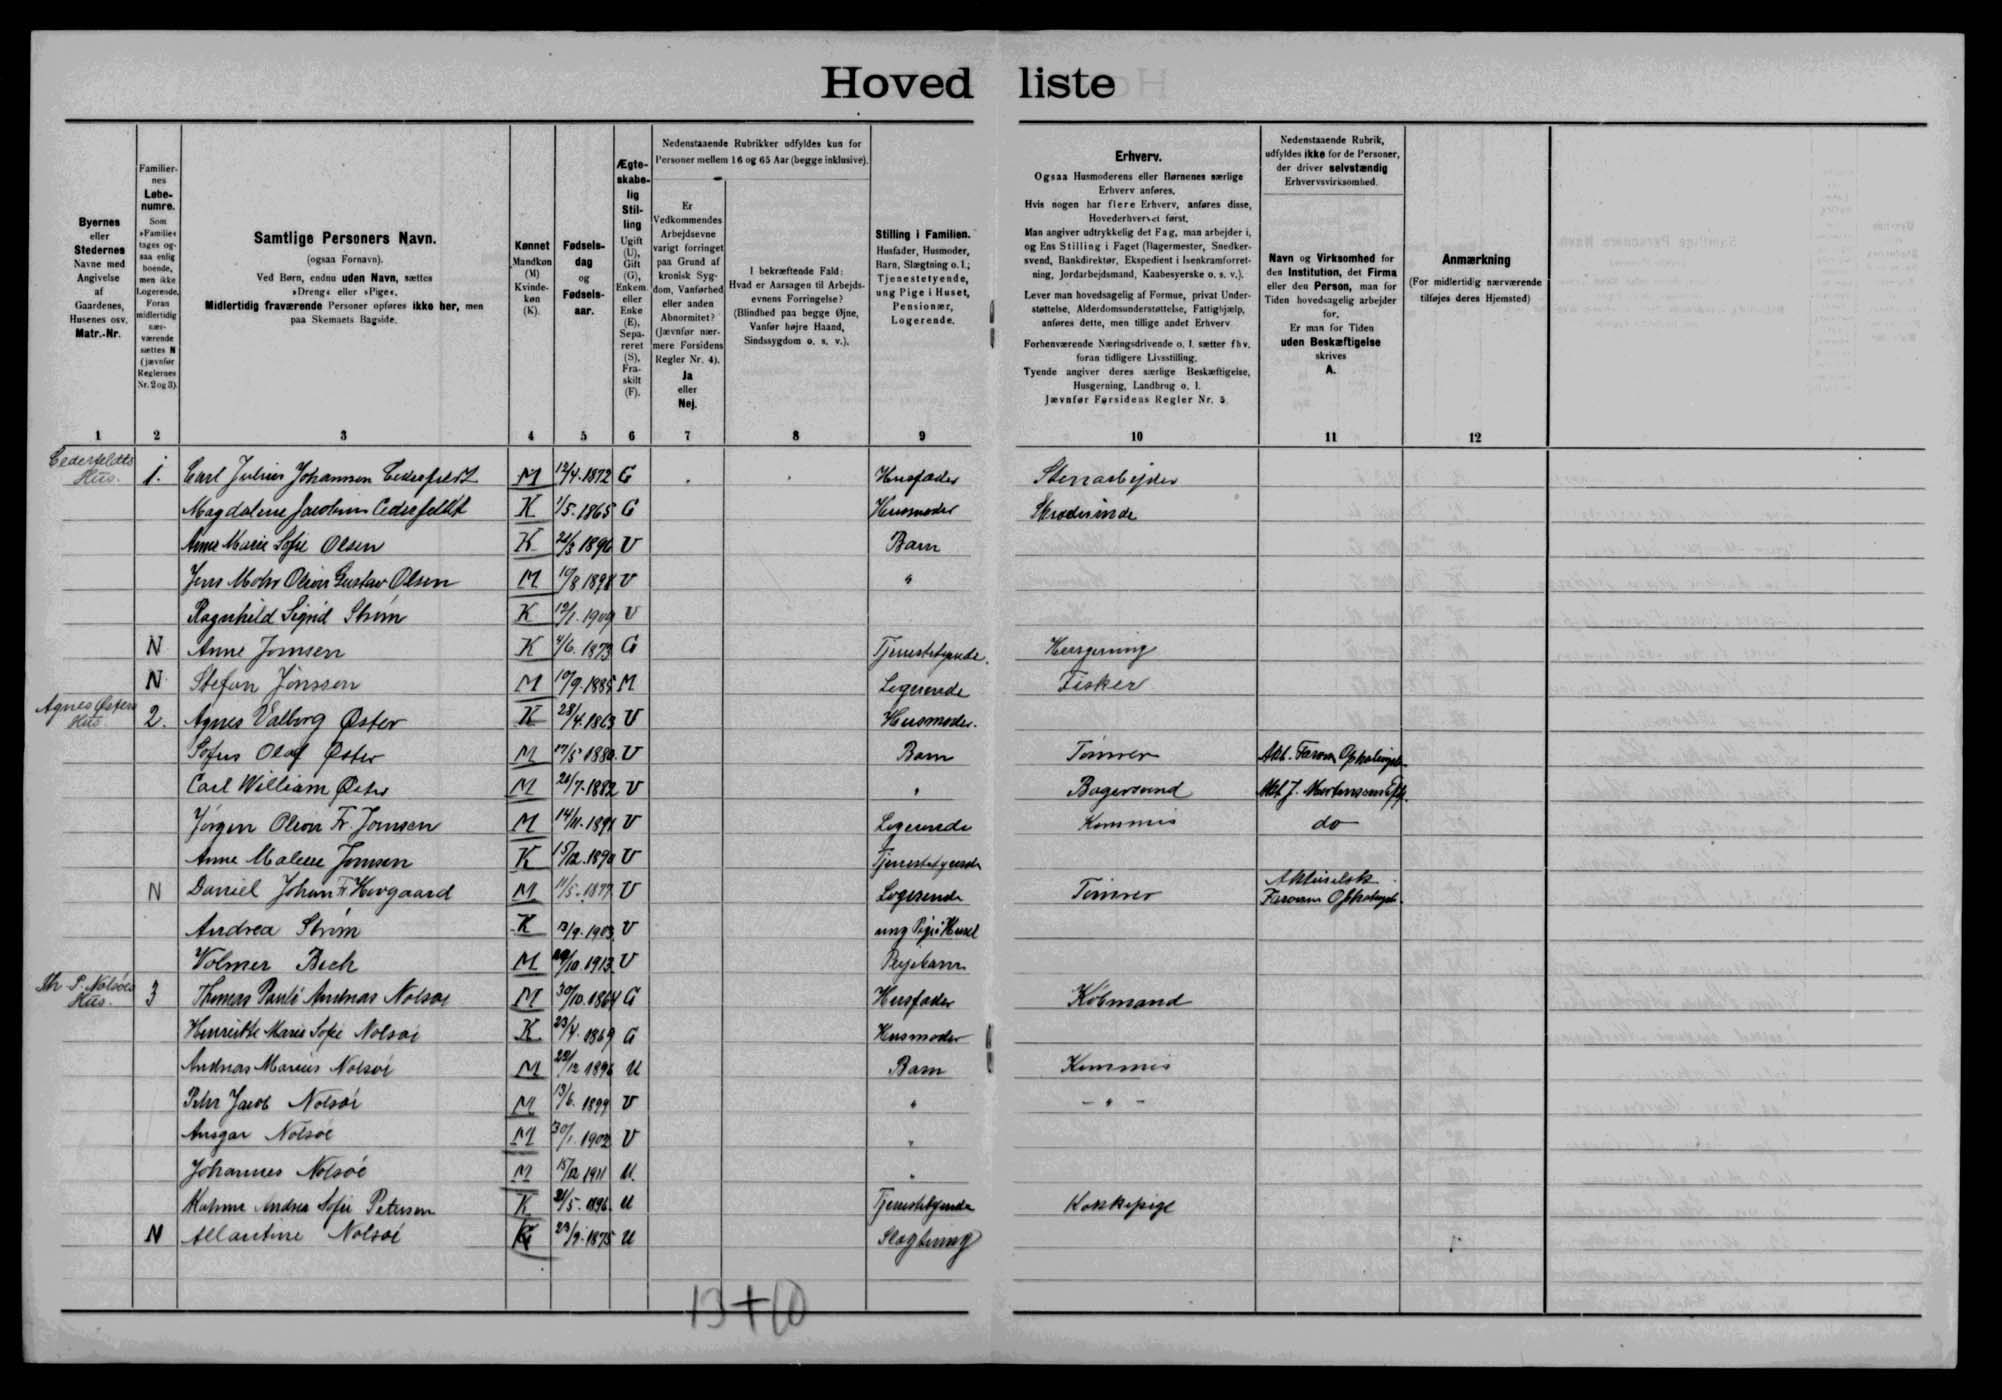 Hoved liste
Byernes
eller
Stedernes
Navne med
Angivelse
af
Gaardenes,
Husenes osv.
Matr.-Nr.
Familier-
nes
Løbe-
numre.
Som
»Familie«
tages og-
saa enlig
boende,
men ikke
Logerende.
Foran
midlertidig
nær-
værende
sættes N
(jævnfør
Reglernes
Nr. 2 og 3).
Samtlige Personers Navn.
(ogsaa Fornavn).
Ved Børn, endnu uden Navn, sættes
»Dreng« eller »Pige«.
Midlertidig fraværende Personer opføres ikke her, men
paa Skemaets Bagside.
Kønnet
Mandkøn
(M)
Kvinde-
køn
(K).
Fødsels-
dag
og
Fødsels-
aar.
Ægte-
skabe-
lig
Stil-
ling
Ugift
(U),
Gift
(G),
Enkem.
eller
Enke
(E),
Sepa-
reret
(S),
Fra-
skilt
(F).
Nedenstaaende Rubrikker udfyldes kun for
Personer mellem 16 og 65 Aar (begge inklusive).
Er
Vedkommendes
Arbejdsevne
varigt forringet
paa Grund af
kronisk Syg-
dom, Vanførhed
eller anden
Abnormitet?
(Jævnfør nær-
mere Forsidens
Regler Nr. 4).
Ja
eller
Nej.
I bekræftende Fald:
Hvad er Aarsagen til Arbejds-
evnens Forringelse?
(Blindhed paa begge Øjne,
Vanfør højre Haand,
Sindssygdom o. s. v.).
Stilling i Familien.
Husfader, Husmoder,
Barn, Slægtning o. l.;
Tjenestetyende,
ung Pige i Huset,
Pensionær,
Logerende.
Erhverv.
Ogsaa Husmoderens eller Børnenes særlige
Erhverv anføres.
Hvis nogen har flere Erhverv, anføres disse,
Hovederhvervet først.
Man angiver udtrykkelig det Fag, man arbejder i,
og Ens Stilling i Faget (Bagermester, Snedker-
svend, Bankdirektør, Ekspedient i Isenkramforret-
ning, Jordarbejdsmand, Kaabesyerske o. s. v.).
Lever man hovedsagelig af Formue, privat Under-
støttelse, Alderdomsunderstøttelse, Fattighjælp,
anføres dette, men tillige andet Erhverv
Forhenværende Næringsdrivende o. l. sætter fhv.
foran tidligere Livsstilling.
Tyende angiver deres særlige Beskæftigelse,
Husgerning, Landbrug o. l.
Jævnfør Forsidens Regler Nr. 5.
Nedenstaaende Rubrik,
udfyldes ikke for de Personer,
der driver selvstændig
Erhvervsvirksomhed.
Navn og Virksomhed for
den Institution, det Firma
eller den Person, man for
Tiden hovedsagelig arbejder
for.
Er man for Tiden
uden Beskæftigelse
skrives
A.
Anmærkning
(For midlertidig nærværende
tilføjes deres Hjemsted)
1 2 3 4 5 6 7 8 9 10 11 12
Cederfeldts
Hus. 1. Carl Julius Johannsen Cederfeldt M 12/4.1872 G Husfader Stenarbejder
Magdalene Jacobine Cederfeldt K 1/5.1865 G Husmoder Skræderinde
Anna Marie Sofie Olsen K 1896 U Barn
Jens Mohr Gustav Olsen M 10/8 1898 U "
Ragnhild Sigrid Strøm K 12/1.1909 U
N Anne Joensen K 4/6.1873 G Tjenestetyende. Husgerning
N Stefan Jónsson M 10/9.1885 M Logerende Fisker
Agnes Østers
Hus 2. Agnes Valborg Øster K 28/4.1863 U Husmoder.
Sofus Olaf Øster M 17/5 1880. U Barn Tømrer
Carl William Øster M 26/7.1882 U " Bagersvend
Jørgen Fr. Joensen M 14/11.1891 U Logerende Kommis do
Anne Malene Joensen K 15/12.1890 U Tjenestetyende
N Daniel Johan Fr. Hovgaard M 11/5.1877. U Logerende Tømrer
Andrea Strøm K 13/9.1903. U ung Pige i Huset
Volmer Bech M 1913. U Plejebarn
Th. P. Nolsøes
Hus. 3 Thomas Pauli Andreas Nolsøe M 30/10.1864 G Husfader Købmand
Henriette Marie Sofie Nolsøe K 23/4.1869 G Husmoder
Andreas Marius Nolsøe M 1896 U Barn Kommis
Peter Jacob Nolsøe M 13/6.1899 U " - " -
Ansgar Nolsøe M 30/1.1902 U "
Johannes Nolsøe M 15/12 1911 U. "
Andrea Sofie Petersen K 21/5.1896. U Tjenestetyende Kokkepige
N Atlantine Nolsøe K 23/9.1875 U Slægtning
13+10